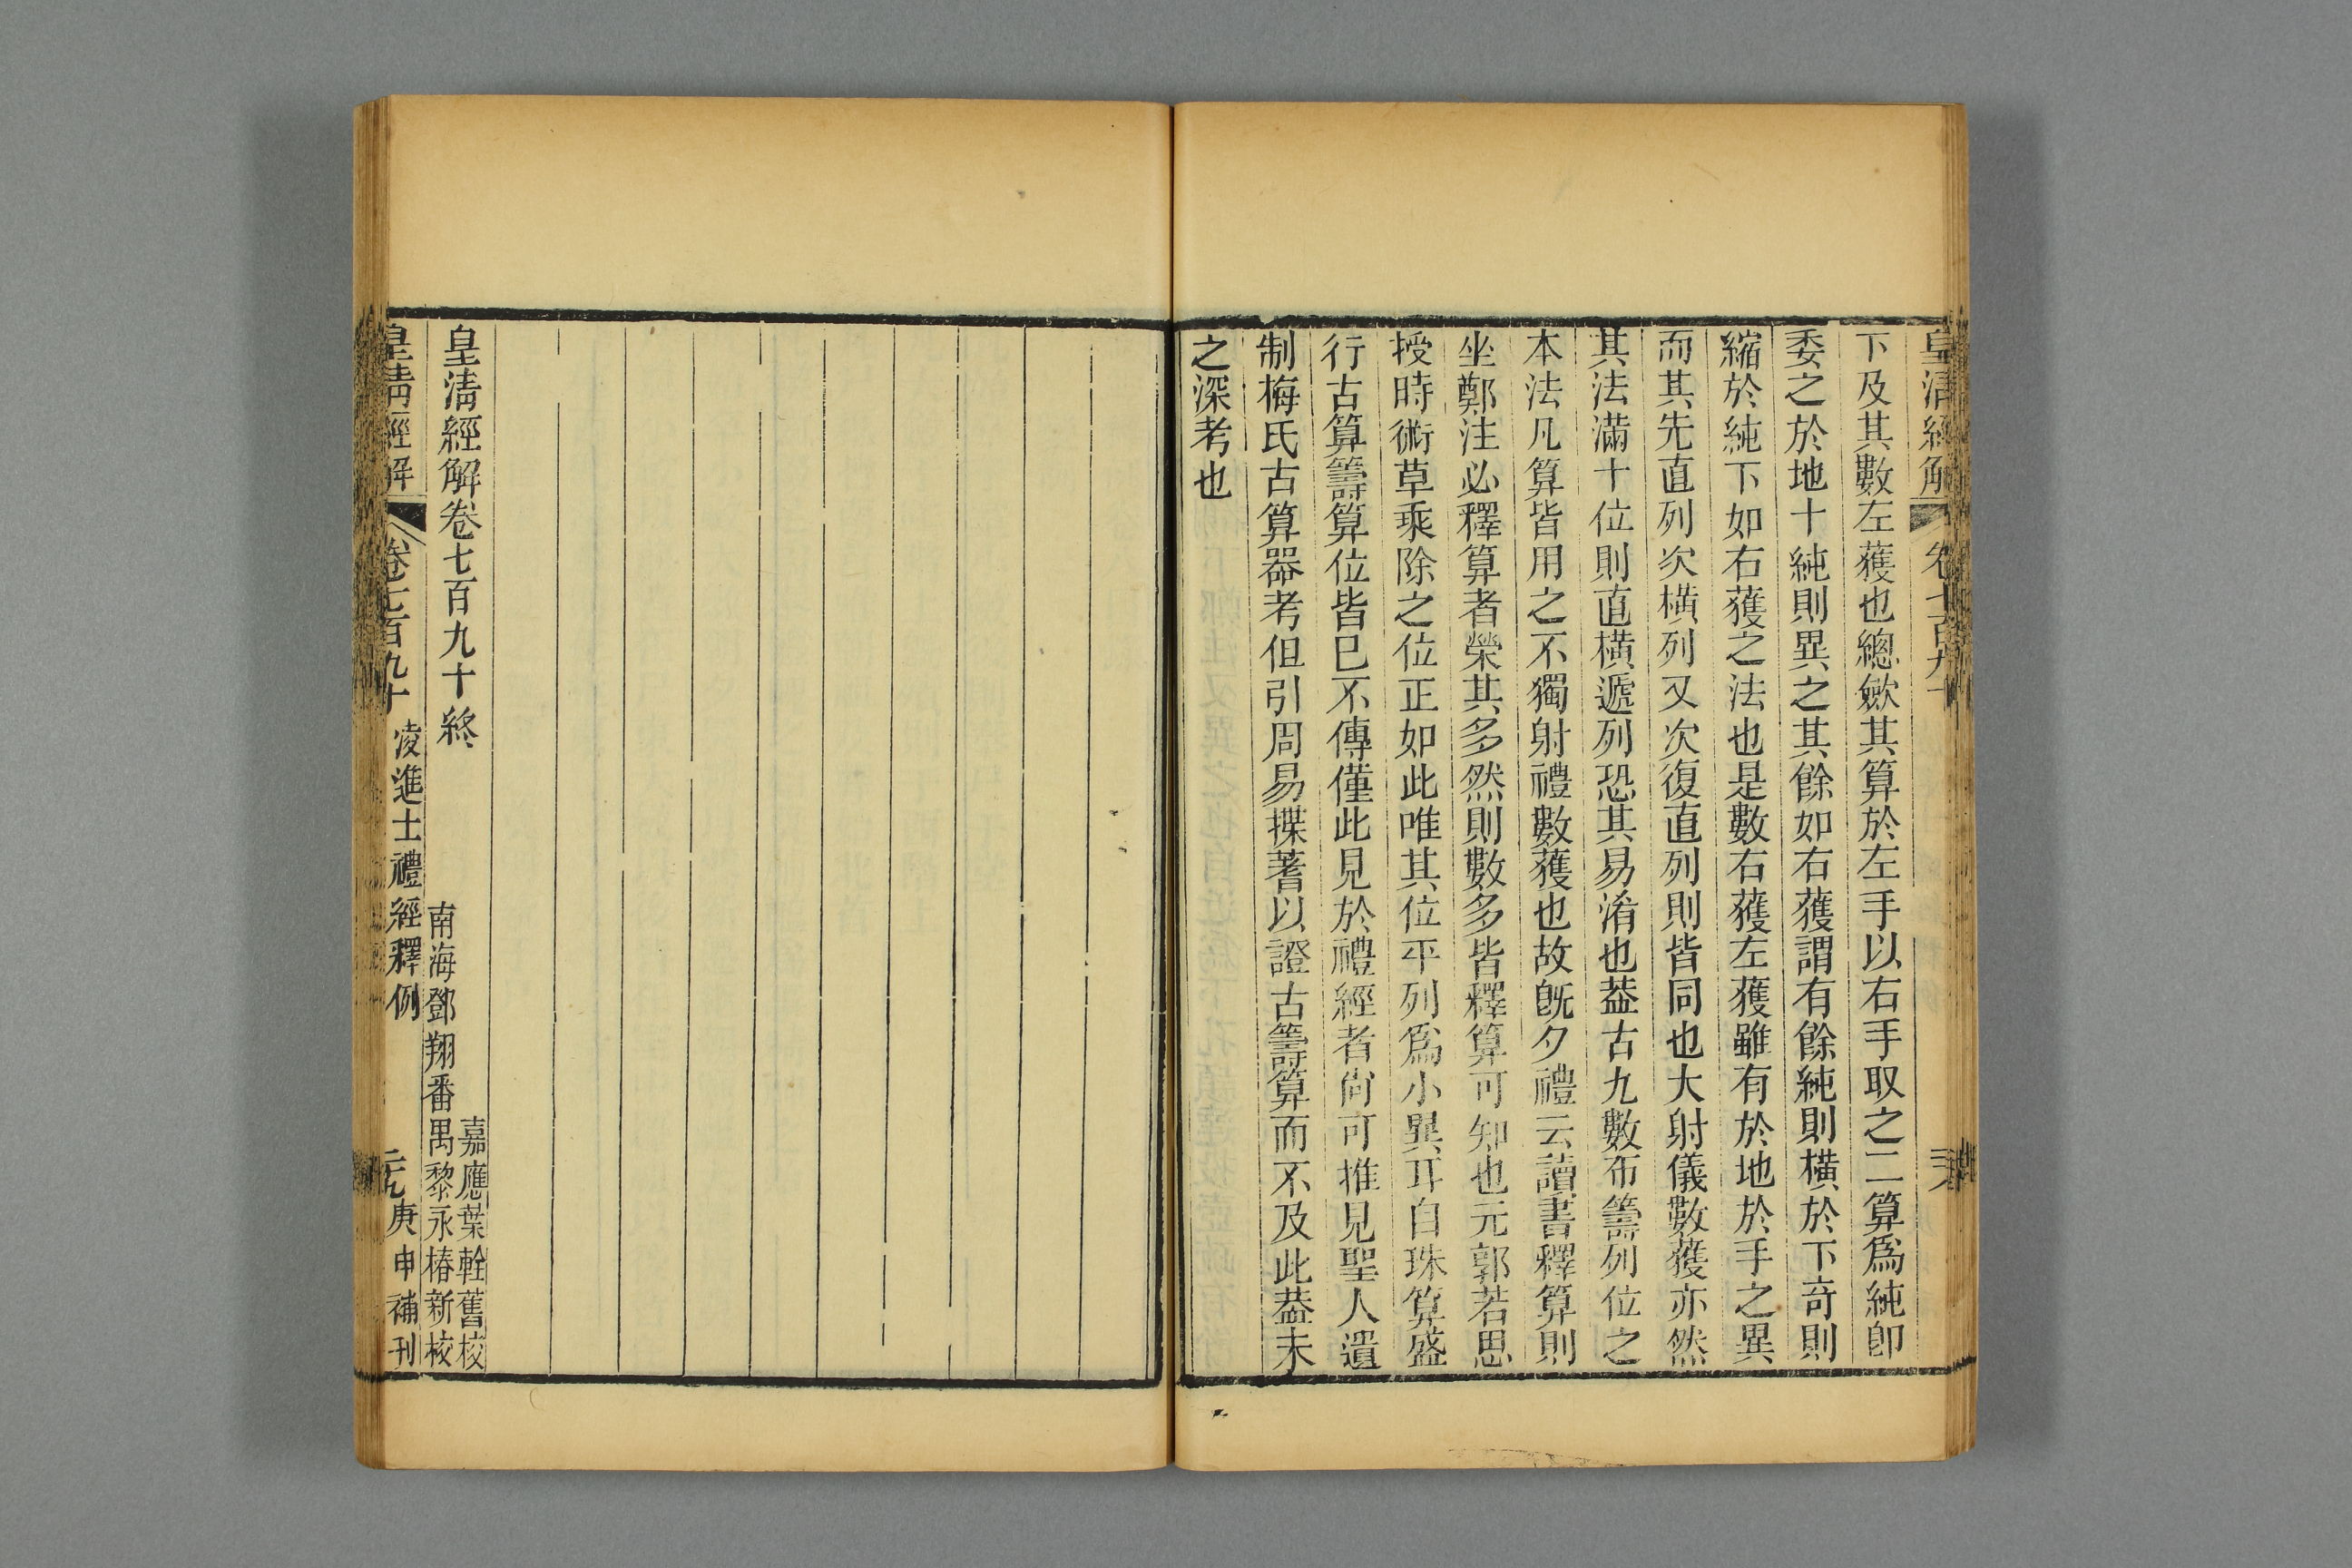 皇清經解 卷七百九十
下及其數左獲也總斂其算於左手以右手取之二算爲純卽
委之於地十純則異之其餘如右獲謂有餘純則橫於下奇則
縮於純下如右獲之法也是數右獲左獲雖有於地於手之異
而其先直列次橫列又次復直列則皆同也大射儀數獲亦然
其法滿十位則直橫遞列恐其易淆也葢古九數布籌列位之
本法凡算皆用之不獨射禮數獲也故旣夕禮云讀書釋算則
坐鄭注必釋算者榮其多然則數多皆釋算可知也元郭若思
授時術草乘除之位正如此唯其位平列爲小異耳自珠算盛
行古算籌算位皆已不傳僅此見於禮經者尙可推見聖人遺
制梅氏古算器考但引周易揲蓍以證古籌算而不及此葢未
之深考也
嘉應葉輇舊校
皇清經解卷七百九十終
南海鄧翔番禺黎永椿新校
皇清經解 卷七百九十 凌進士禮經釋例 庚申補刊